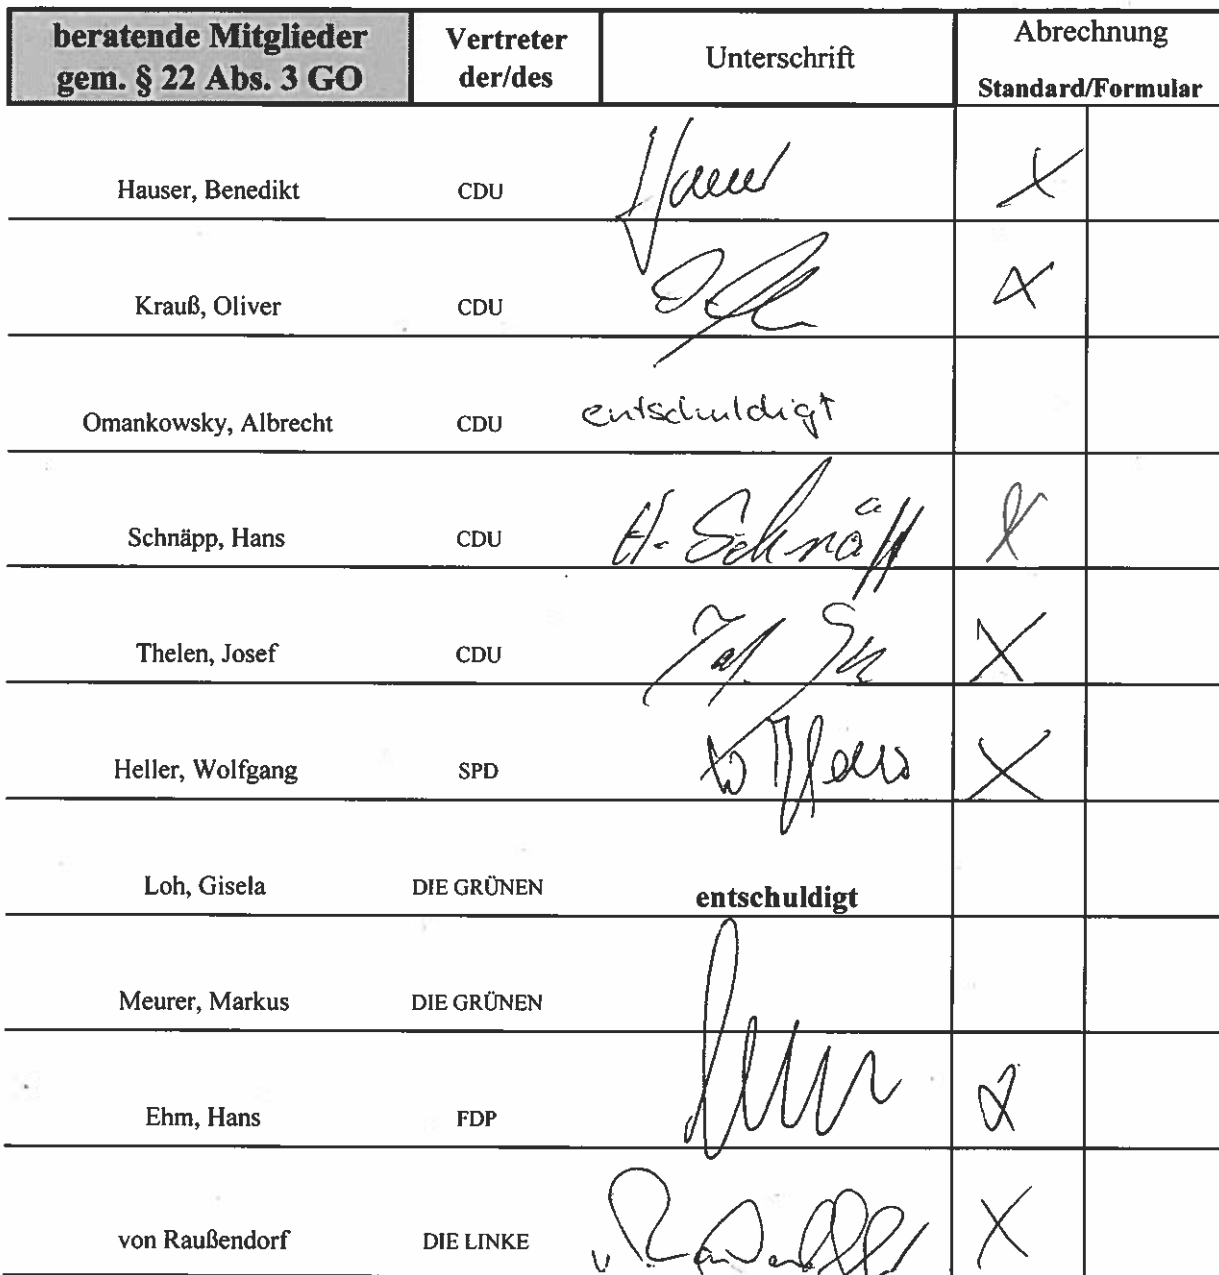 beratende Mitglieder
gem. § 22 Abs. 3 GO
Vertreter
der/des
Unterschrift
Abrechnung
Standard/Formular
Hauser, Benedikt CDU
Krauß, Oliver CDU
Omankowsky, Albrecht CDU entschuldigt
Schnäpp, Hans CDU H. Schnäpp
Thelen, Josef CDU
Heller, Wolfgang SPD
Loh, Gisela DIE GRÜNEN entschuldigt
Meurer, Markus DIE GRÜNEN
Ehm, Hans FDP
von Raußendorf DIE LINKE